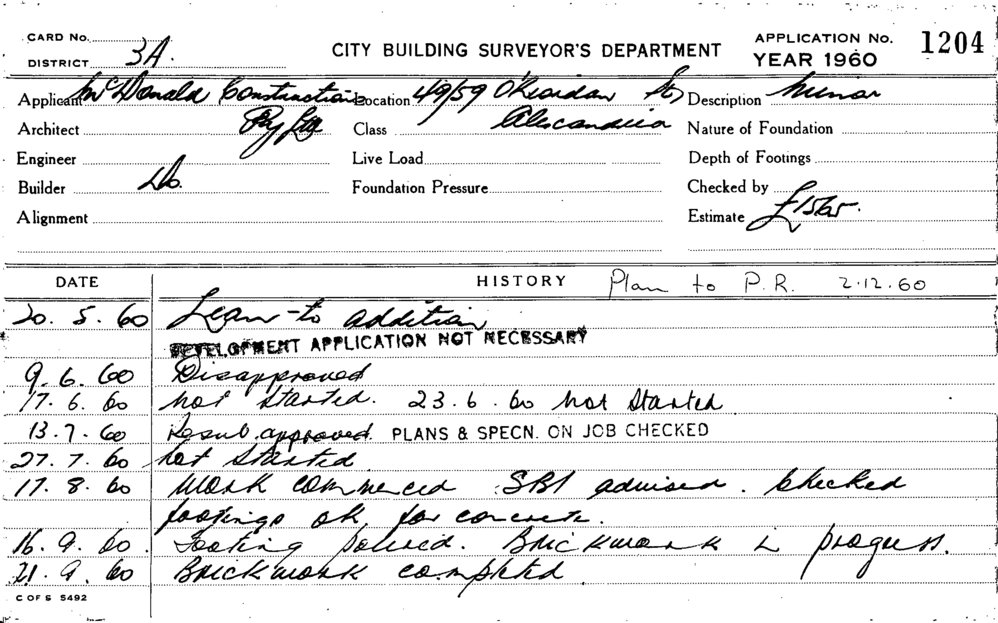 CARD No.
DISTRICT 3A.
CITY BUILDING SURVEYOR'S DEPARTMENT
APPLICATION No. 1204
YEAR 1960
Applicant McDonald Constructions Location 49/59 O'Riordan St, Description Minor
Architect Pty Ltd Class Alexandria Nature of Foundation
Engineer Live Load Depth of Footings
Builder Do. Foundation Pressure Checked by
Alignment Estimate £1565.
DATE HISTORY Plan to P.R. 2.12.60
20. 5. 60 Lean-to addition
DEVELOPMENT APPLICATION NOT NECESSARY
9. 6. 60 Disapproved
17. 6. 60 not started. 23.6.60 not started
13. 7. 60 Resub. approved. PLANS & SPECN. ON JOB CHECKED
27. 7. 60 not started.
17. 8. 60 Work commenced. SBI advised. Checked
footings ok, for concrete.
16. 9. 60. Footing poured. Brickwork in progress.
21. 9. 60 Brickwork completed
C OF S 5492